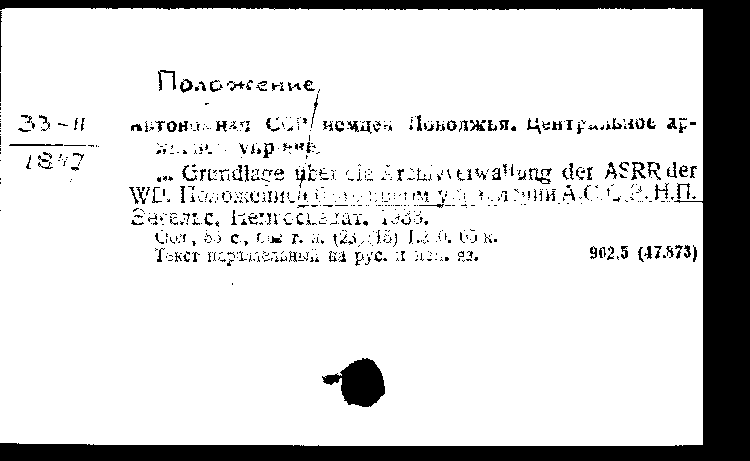 Положение
33-11
1847
Автономная ССР немцев Поволжья. Центральное ар-
хивное упр-ние.
... Grundlage über die Archivverwaltung der ASRR der
WD. Положение об архивном управлении А.С.С.Р.Н.П.
Энгельс, Немгосиздат, 1933.
с., т. п. (23) (18)
Текст параллельный на рус. и нем. яз. 902.5 (47.873)